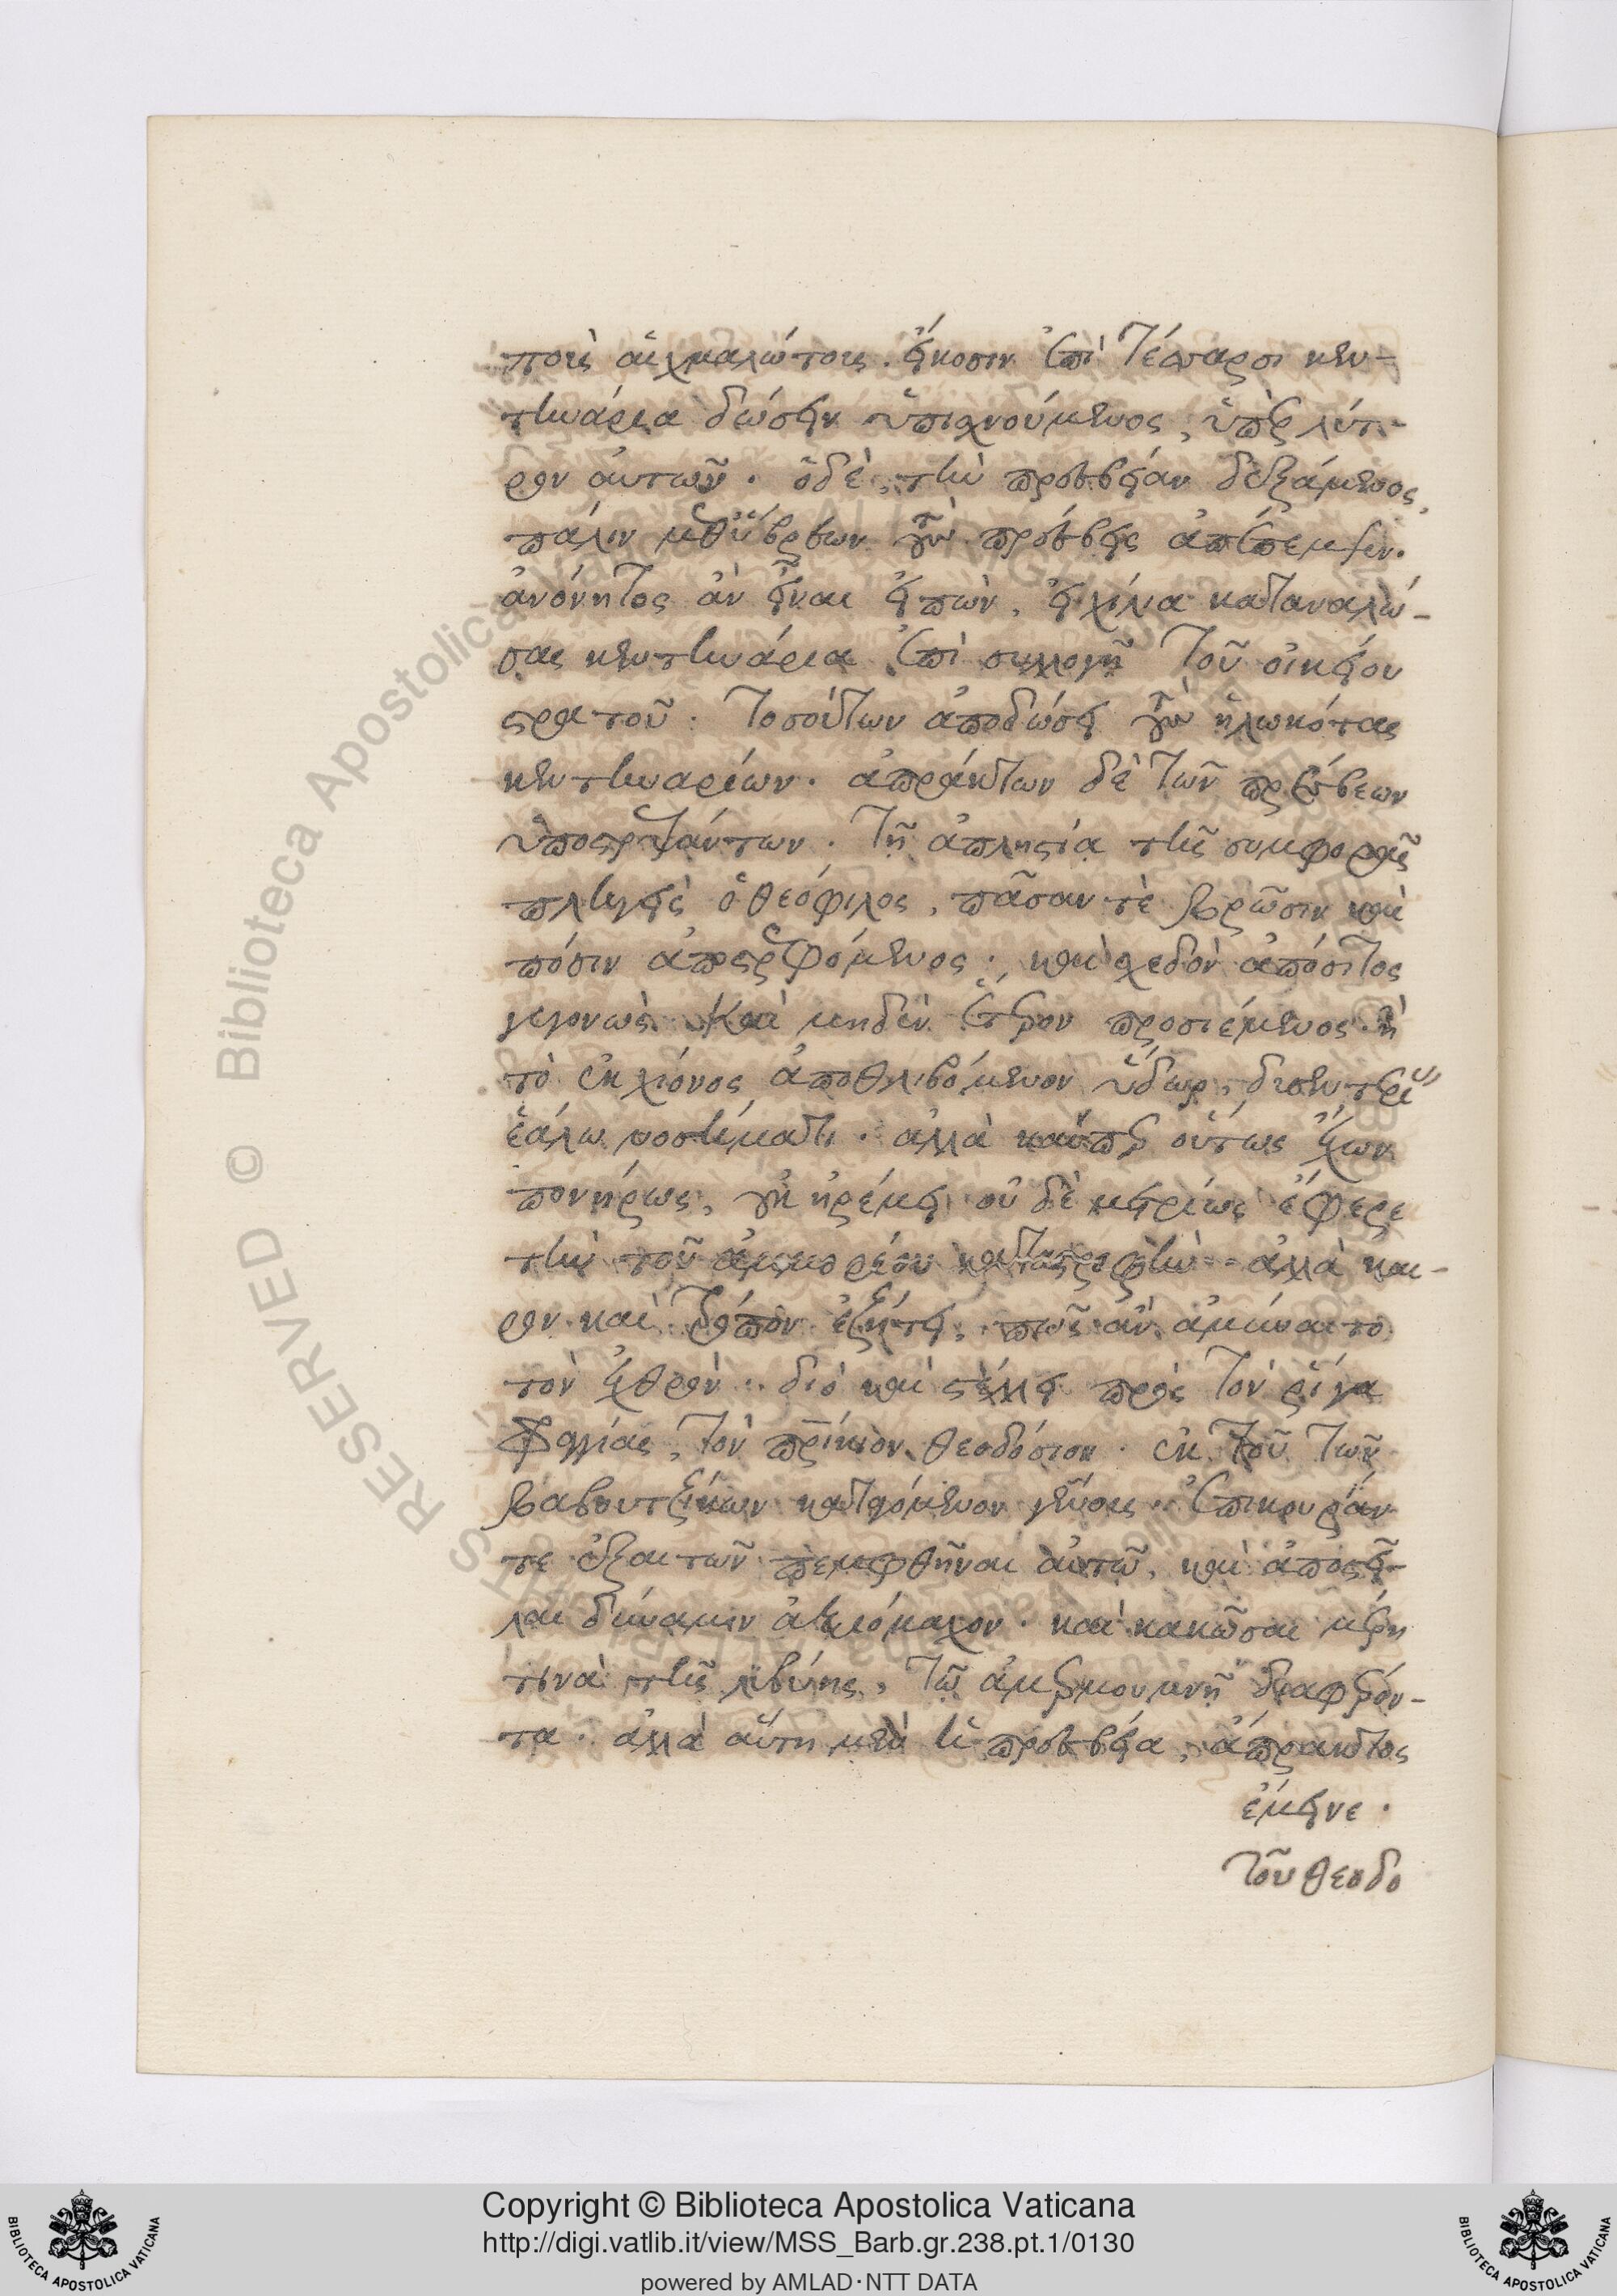 τοὺς αἰχμαλώτους. εἴκοσιν ἐπὶ τέσσαρσι κεν-
τηνάρια δώσειν ὑπισχνούμενος, ὑπὲρ λύτ-
ρον αὐτῶν. ὁ δὲ, τὴν πρεσβείαν δεξάμενος,
πάλιν μεθ' ὕβρεων τοὺς πρέσβεις ἀπέπεμψεν.
ἀνόνητος ἂν εἶναι εἰπὼν, εἰ χίλια καταναλώ-
σας κεντηνάρια ἐπὶ συλλογῇ τοῦ οἰκείου
στρατοῦ. τοσούτων ἀποδώσει τοὺς ἡλωκότας
κεντηναρίων. ἀπράκτων δὲ τῶν πρέσβεων
ὑποστρεψάντων. τῇ ἀπληστία τῆς συμφορᾶς
πληγεὶς ὁ θεόφιλος, πᾶσαν τὲ βρῶσιν καὶ
πόσιν ἀπεστρεφόμενος. καὶ σχεδὸν ἀπόσιτος
γεγονὼς. Καὶ μηδὲν ἕτερον προσιέμενος ἢ
τὸ ἐκ χιόνος ἀποθλιβόμενον ὕδωρ, δυσεντερί
ἑάλω νοσήματι. ἀλλὰ καίπερ οὕτως ἔχων
πονήρως, οὐκ ἠρέμει οὐ δὲ μετρίως ἔφερε
τὴν τοῦ ἀμμορίου καταστροφὴν. ἀλλὰ και-
ρὸν καὶ τρόπον ἐζήτει, πῶς ἂν ἀμύναιτο
τὸν ἐχθρὸν. διὸ καὶ στέλλει πρὸς τὸν ῥίγα
Φραγγίας, τὸν πρίκιον θεοδόσιον. ἐκ τοῦ τῶν
βαβουτζίκων καταγόμενον γένους. ἐπικουρίαν
τε ἐξαιτῶν πεμφθῆναι αὐτῷ, καὶ ἀποστεῖ-
λαι δύναμιν ἀξιόμαχον. καὶ κακῶσαι μέρη
τινὰ τῆς λιβύης, τῷ ἀμερμουμνῇ διαφέρον-
τα. ἀλλὰ αὕτη μὲν ἡ πρεσβεία, ἄπρακτος
ἔμεινε.
Τοῦ θεοδο
Copyright © Biblioteca Apostolica Vaticana
http://digi.vatlib.it/view/MSS_Barb.gr.238.pt.1/0130
powered by AMLAD·NTT DATA